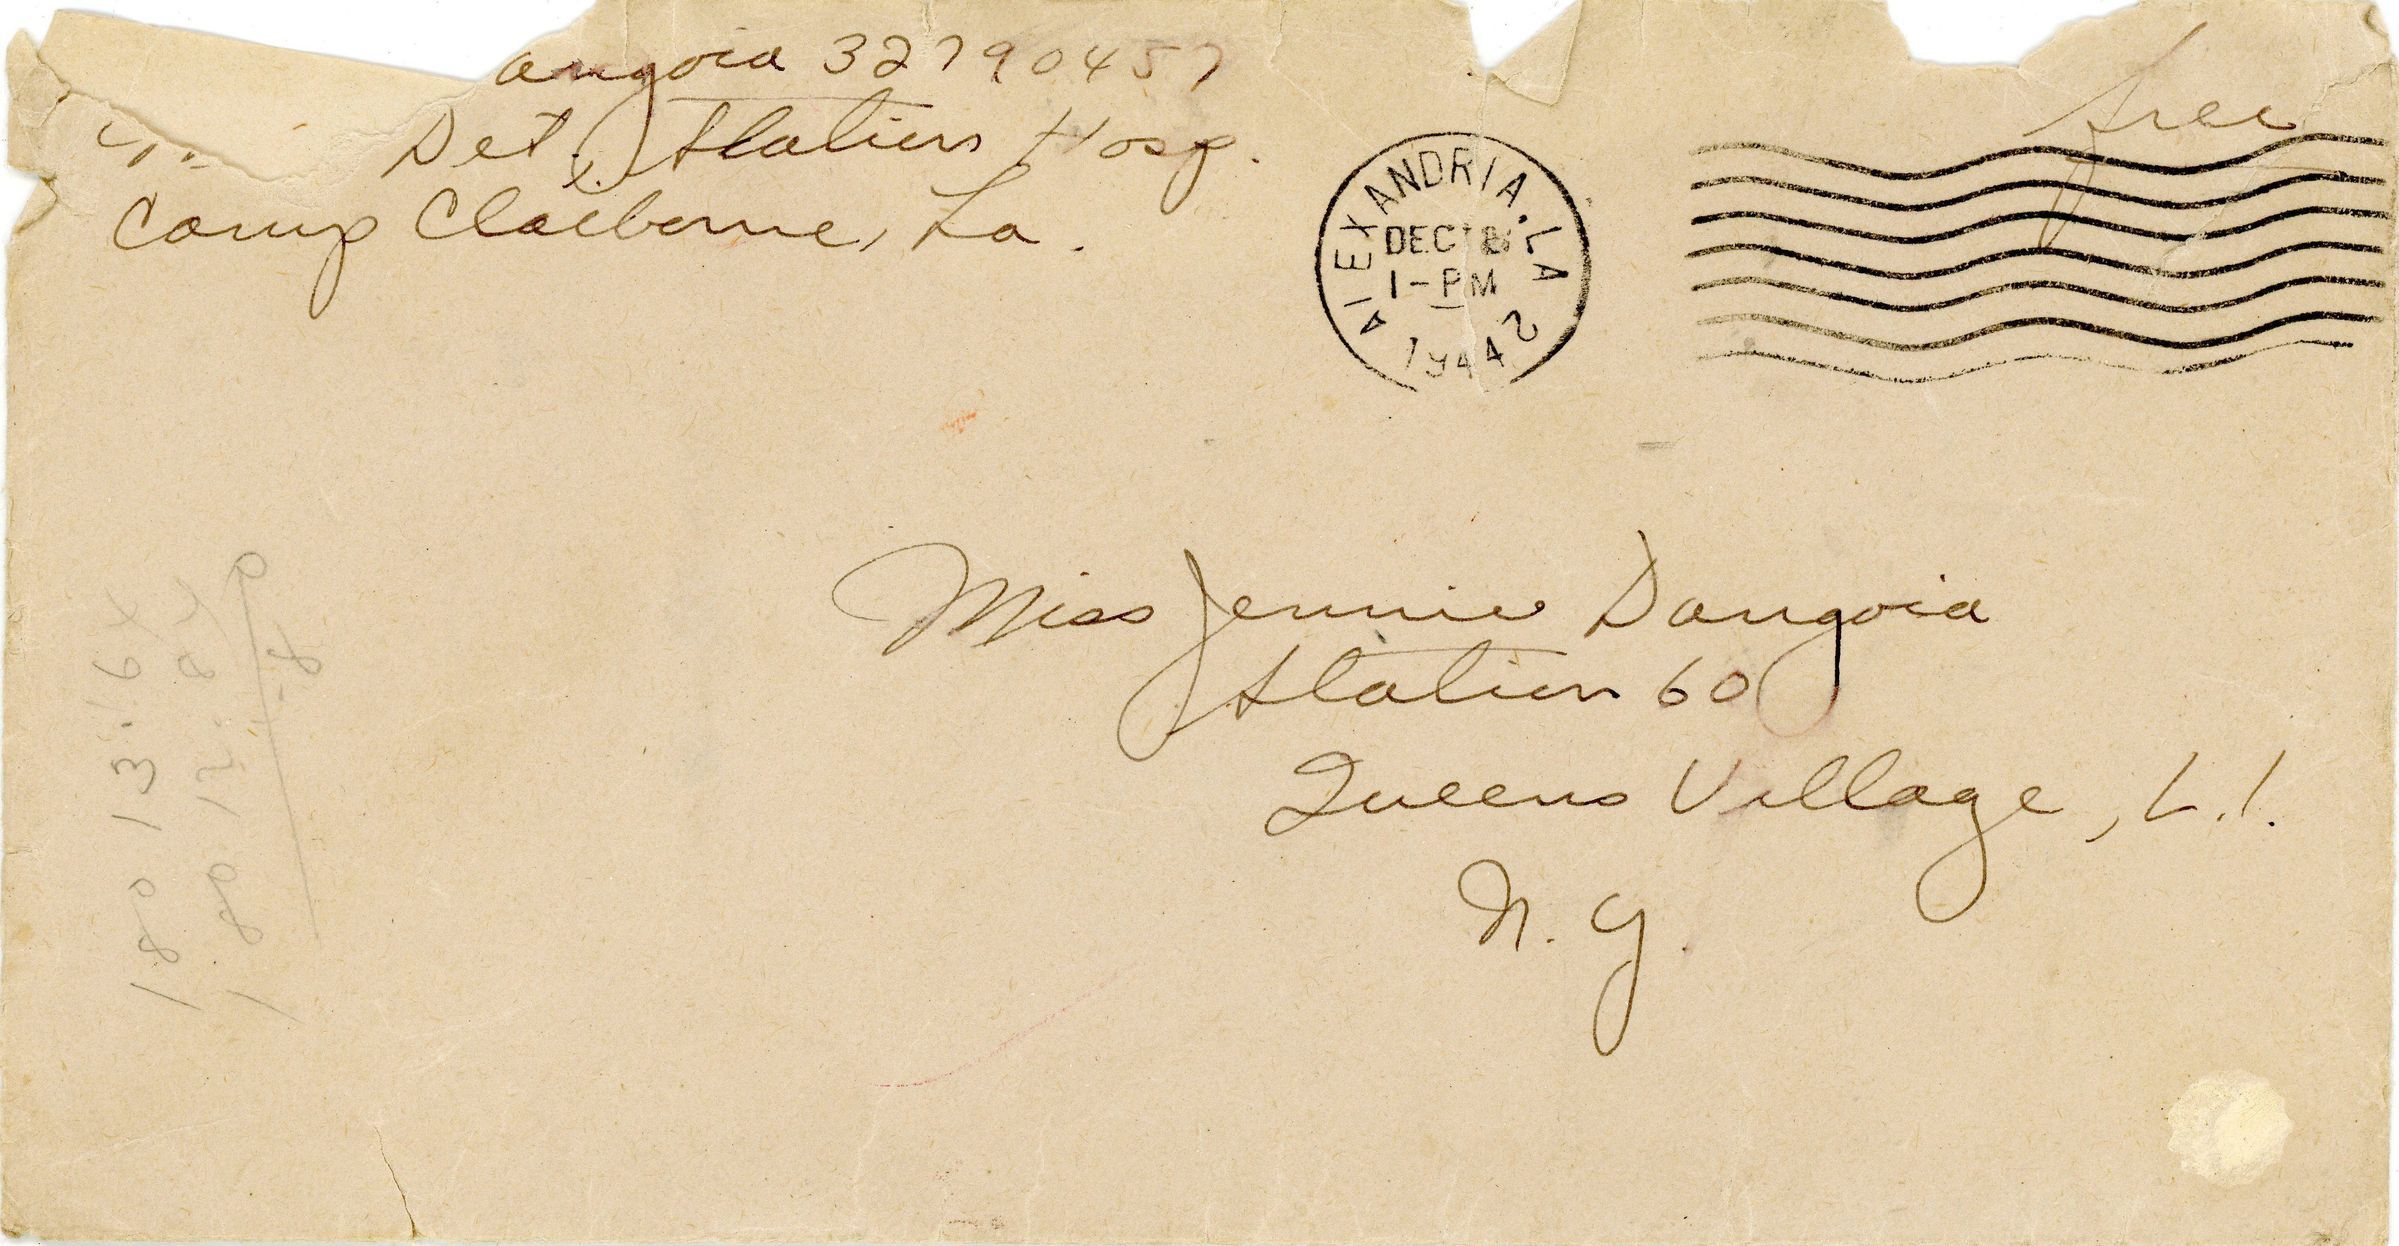 angoia 32790457
Det. Station Hosp.
Camp Claiborne, La.
Free
ALEXANDRIA, LA
DEC
1-PM
Miss Jennie Dangoia
Station 60
Queens Village, L.I.
N.Y.